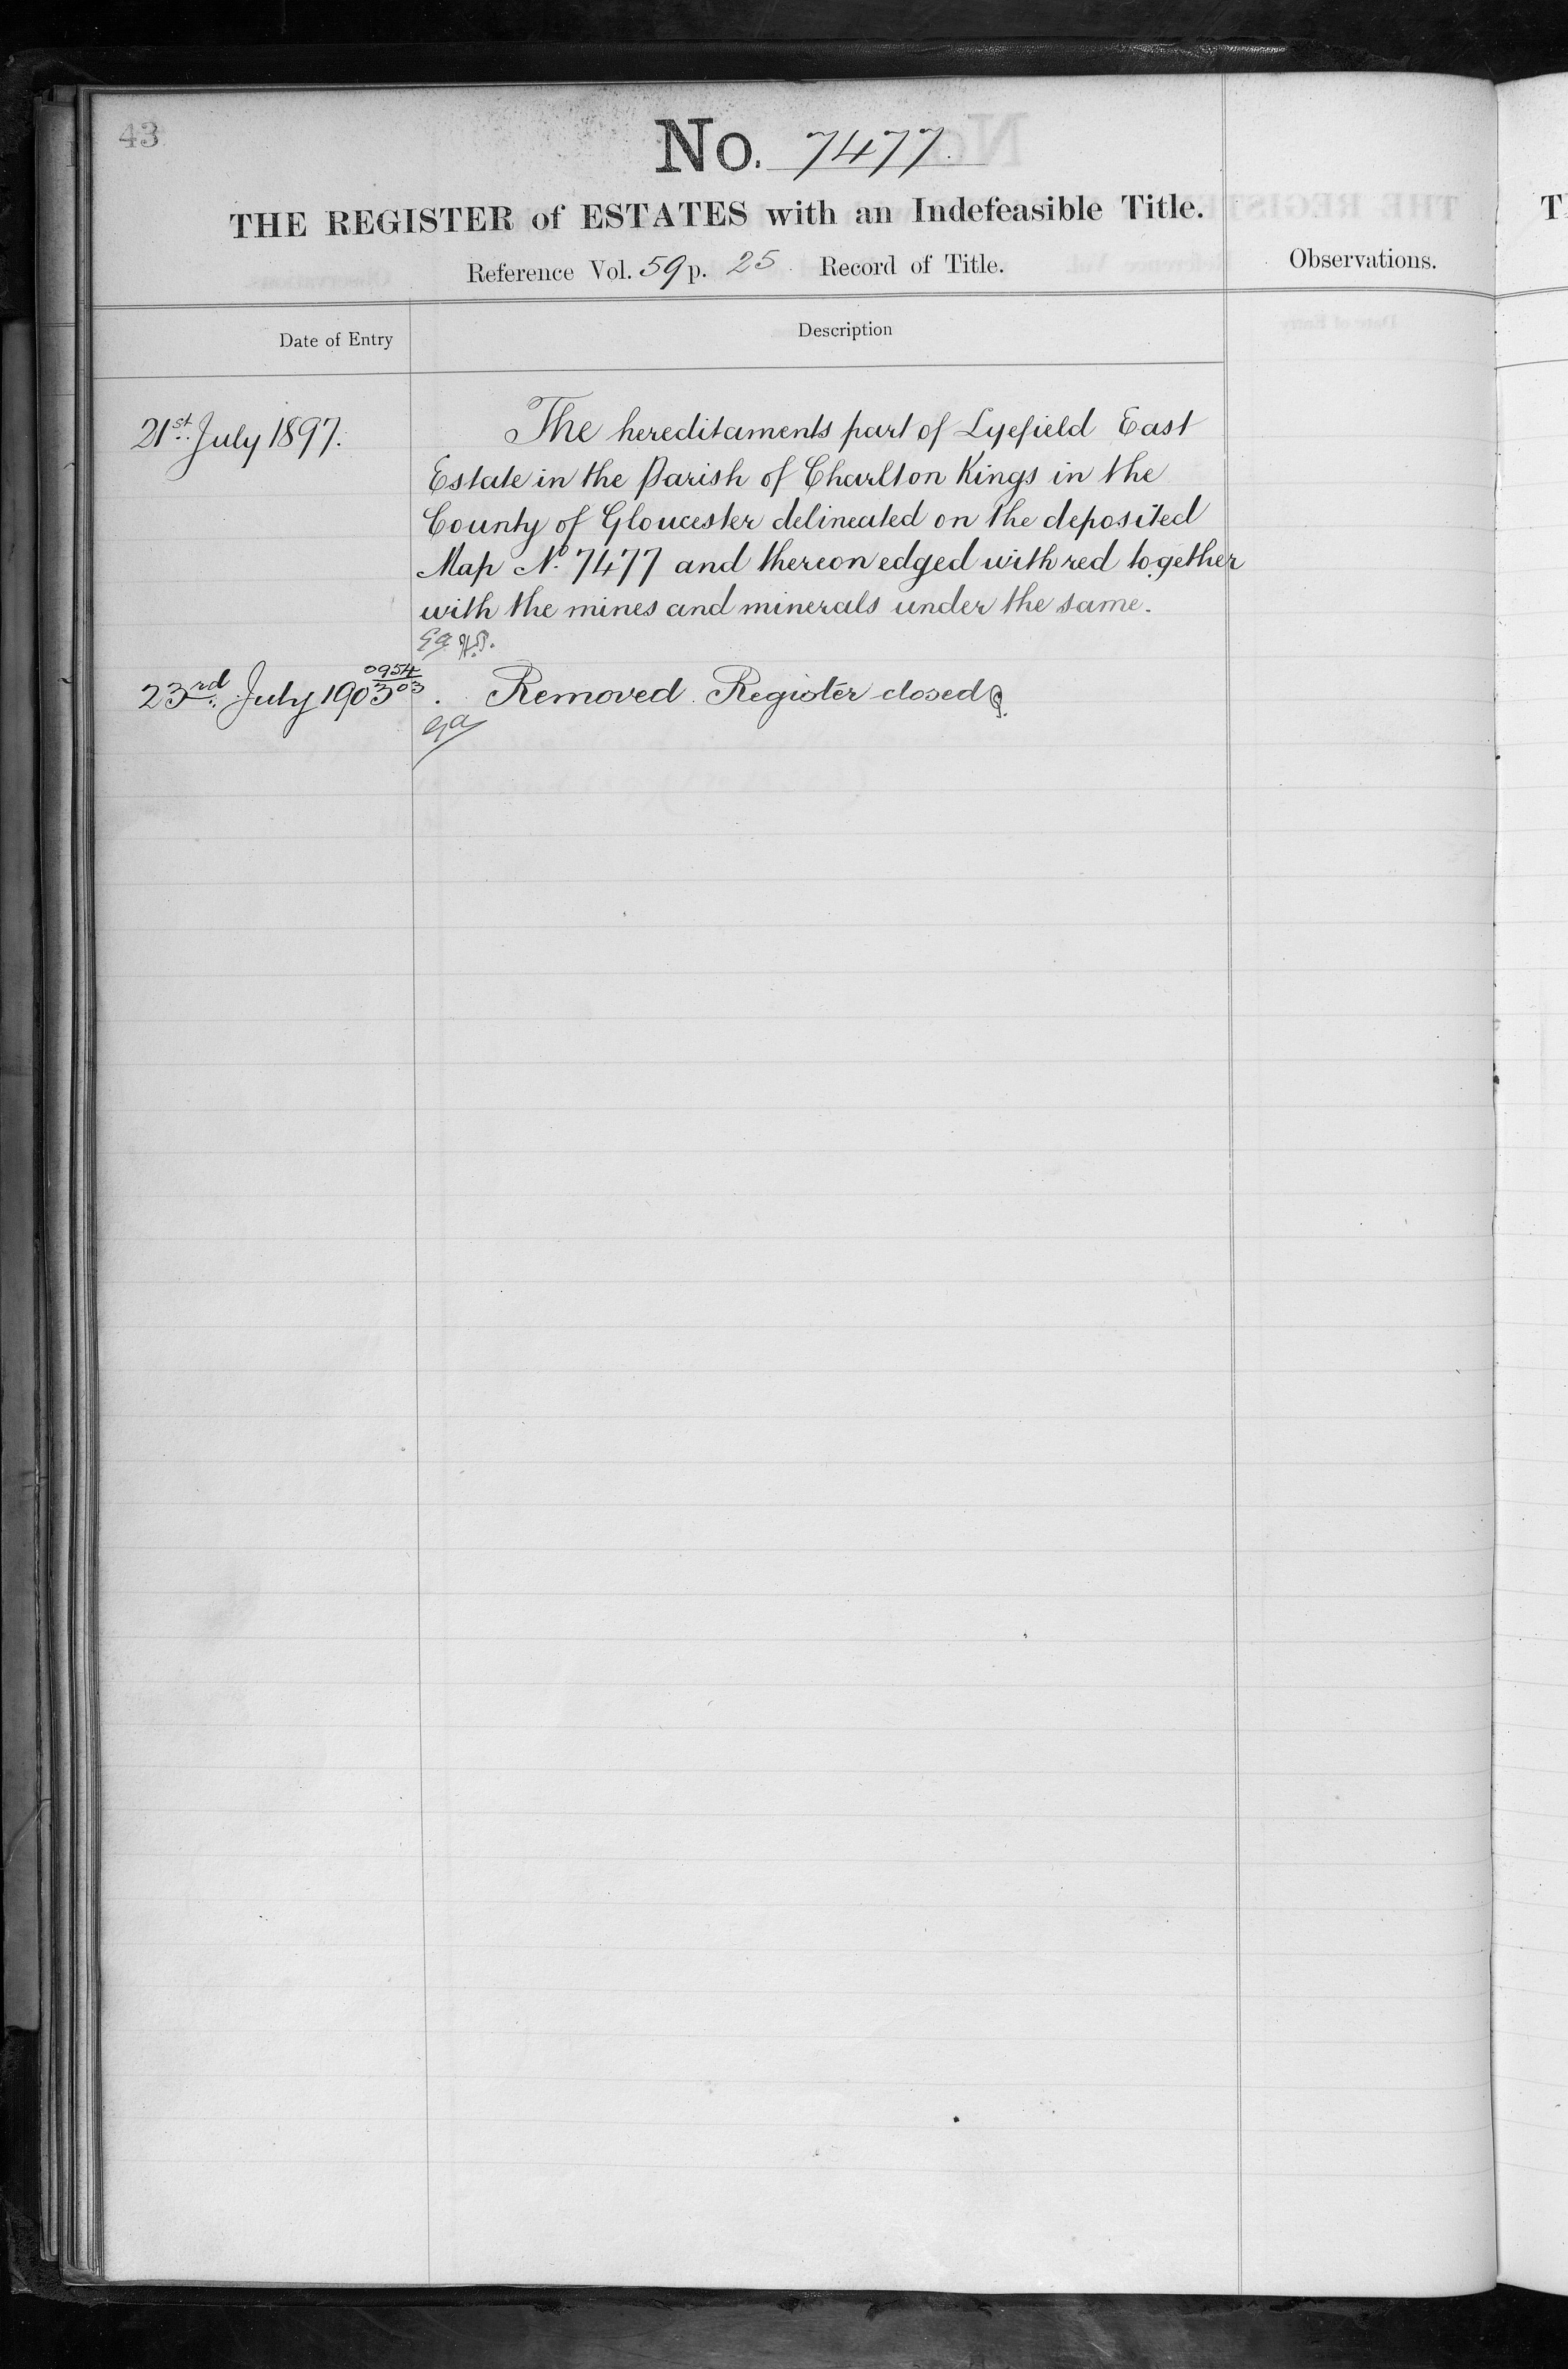 43
No. 7477.
THE REGISTER of ESTATES with an Indefeasible Title.
Reference Vol. 59 p. 25 Record of Title.
Observations.
Date of Entry
Description
21st. July 1897.
The hereditaments part of Lyefield East
Estate in the Parish of Charlton Kings in the
County of Gloucester delineated on the deposited
Map No. 7477 and thereon edged with red together
with the mines and minerals under the same.
0954
03
23rd. July 1903. Removed. Register closed